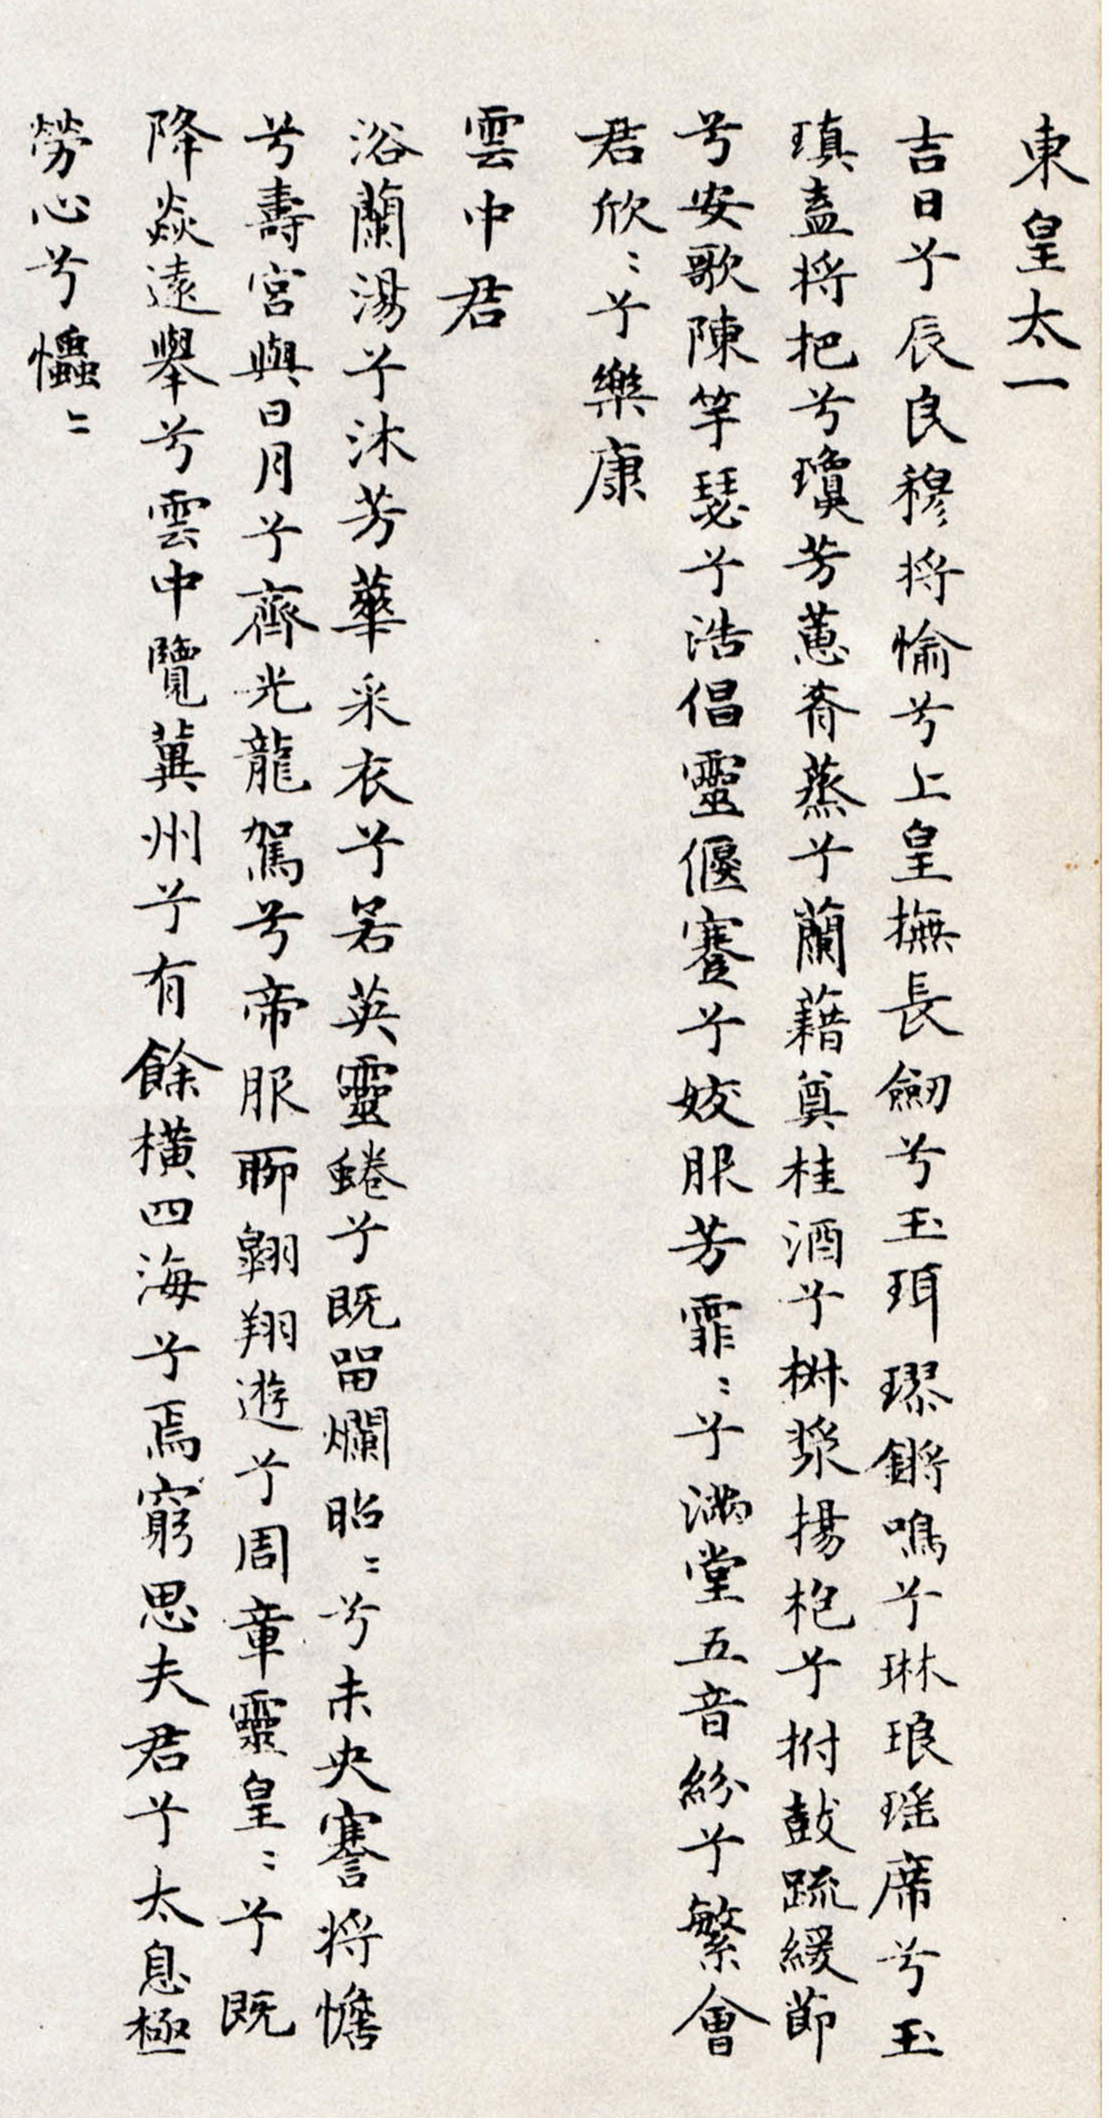 東皇太一
吉日兮辰良穆將愉兮上皇撫長劒兮玉珥璆鏘鳴兮琳琅瑤席兮玉
瑱盍將把兮瓊芳蕙肴蒸兮蘭藉奠桂酒兮椒漿揚枹兮拊鼓疏緩節
兮安歌陳竽瑟兮浩倡靈偃蹇兮姣服芳霏〻兮滿堂五音紛兮繁會
君欣〻兮樂康
雲中君
浴蘭湯兮沐芳華采衣兮若英靈蜷兮既留爛昭〻兮未央謇將憺
兮壽宮與日月兮齊光龍駕兮帝服聊翱翔遊兮周章靈皇〻兮既
降猋遠舉兮雲中覽冀州兮有餘橫四海兮焉窮思夫君兮太息極
勞心兮㤝〻